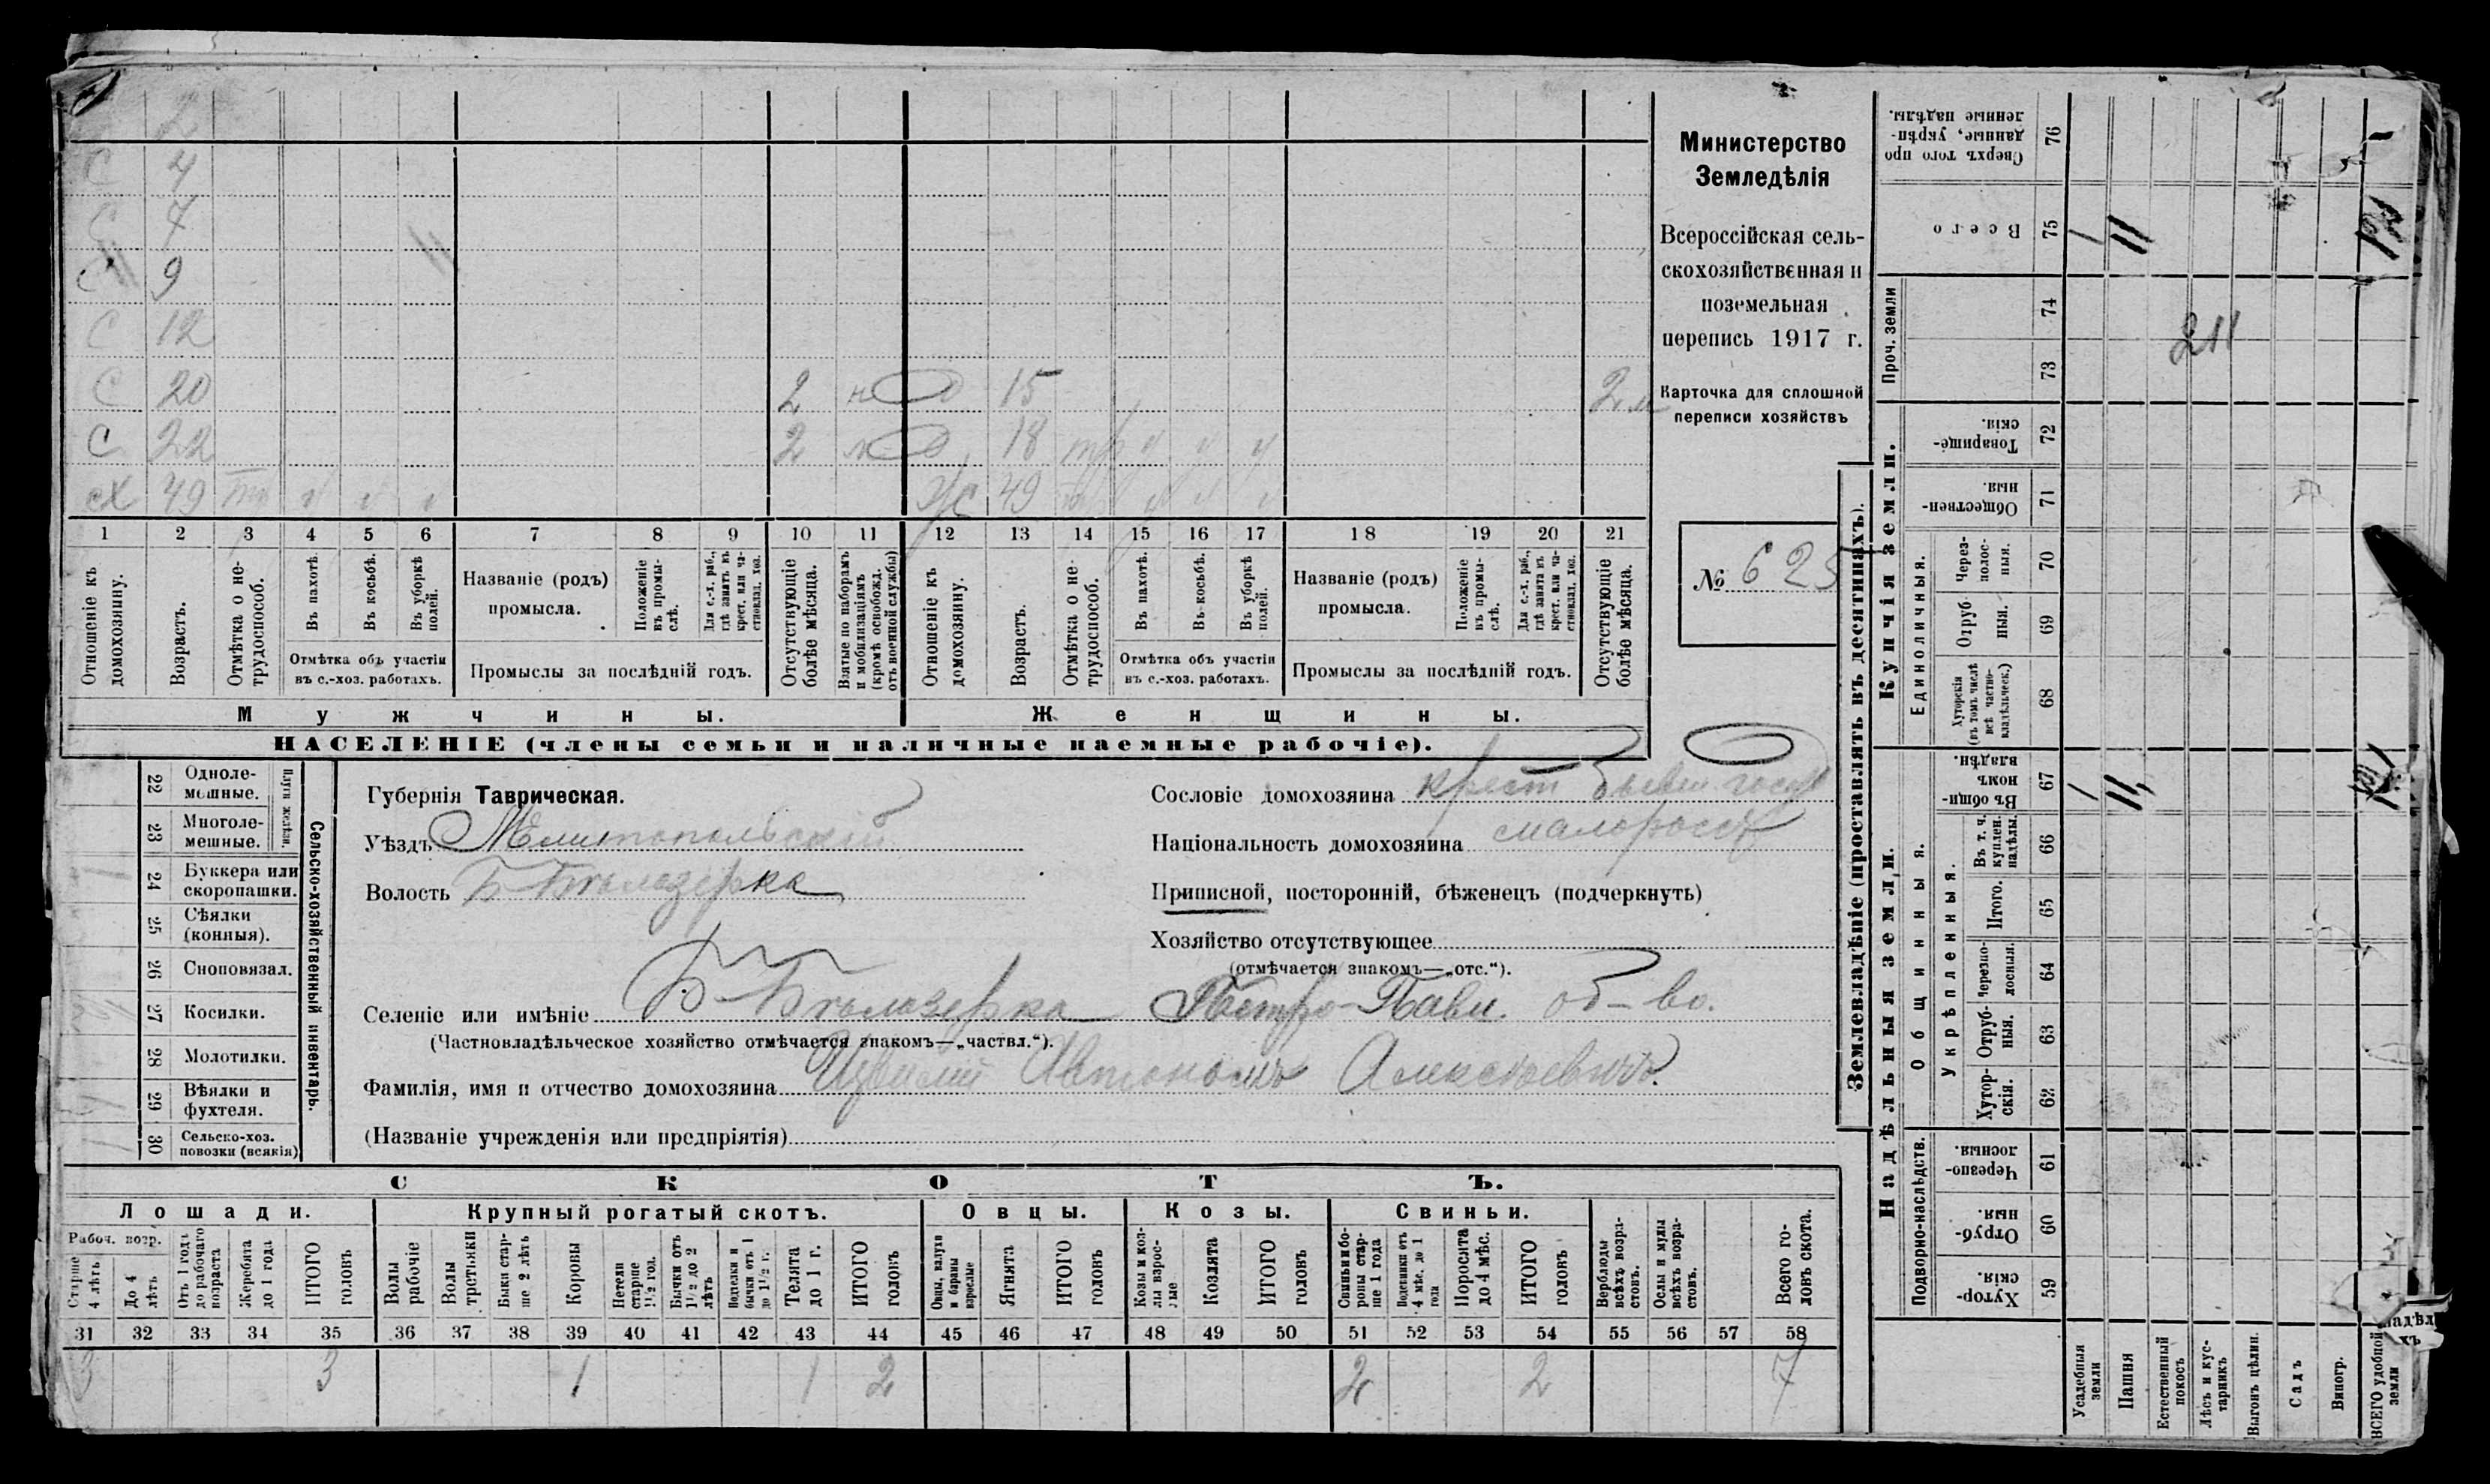 2
С 4
С 7
С 9
С 12
С 20 2 15 2
С 22 2 18
сХ 49 49
1 2 3 4 5 6 7 8 9 10 11 12 13 14 15 16 17 18 19 20 21
Отношеніе къ домохозяину.
Возрастъ.
Отмѣтка о не-трудоспособ.
Въ пахотѣ.
Въ косьбѣ.
Въ уборкѣ полей.
Отмѣтка объ участіи
въ с.-хоз. работахъ.
Названіе (родъ)
промысла.
Положеніе въ промы-слѣ.
Для с.-х. раб., гдѣ занятъ въ крест. или ча-стновлад. хоз.
Промыслы за послѣдній годъ.
Отсутствующіе болѣе мѣсяца.
Взятые по наборамъ и мобилизаціямъ (кромѣ освобожд. отъ военной службы)
Отношеніе къ домохозяину.
Возрастъ.
Отмѣтка о не-трудоспособ.
Въ пахотѣ.
Въ косьбѣ.
Въ уборкѣ полей.
Отмѣтка объ участіи
въ с.-хоз. работахъ.
Названіе (родъ)
промысла.
Положеніе въ промы-слѣ.
Для с.-х. раб., гдѣ занята въ крест. или ча-стновлад. хоз.
Промыслы за послѣдній годъ.
Отсутствующіе болѣе мѣсяца.
Мужчины. Женщины.
НАСЕЛЕНІЕ (члены семьи и наличные наемные рабочіе).
Министерство
Земледѣлія
Всероссійская сель-
скохозяйственная и
поземельная
перепись 1917 г.
Карточка для сплошной
переписи хозяйствъ
№ 625
Сельско-хозяйственный инвентарь.
Плуги желѣзн.
22 Одноле-мешные.
23 Многоле-мешные.
24 Буккера или скоропашки.
25 Сѣялки (конныя).
26 Сноповязал.
27 Косилки.
28 Молотилки.
29 Вѣялки и фухтеля.
30 Сельско-хоз. повозки (всякія)
Губернія Таврическая.
Уѣздъ Мелитопольскій
Волость Б-Бѣлозерка
Селеніе или имѣніе Б-Бѣлозерка Петро-Павл. об-во.
(Частновладѣльческое хозяйство отмѣчается знакомъ—„частвл.“).
Фамилія, имя и отчество домохозяина Автономъ Алексѣевичъ.
(Названіе учрежденія или предпріятія)
Сословіе домохозяина крест бывш госуд
Національность домохозяина малороссъ
Приписной, посторонній, бѣженецъ (подчеркнуть)
Хозяйство отсутствующее
(отмѣчается знакомъ—„отс.“).
СКОТЪ.
Лошади. Крупный рогатый скотъ. Овцы. Козы. Свиньи.
Рабоч. возр.
Старше 4 лѣтъ.
До 4 лѣтъ
Отъ 1 года до рабочаго возраста
Жеребята до 1 года
ИТОГО головъ
Волы рабочіе
Волы третьяки
Быки стар-ше 2 лѣтъ
Коровы
Нетели старше 1½ год.
Бычки отъ 1½ до 2 лѣтъ
Подтелки и бычки отъ 1 до 1½ г.
Телята до 1 г.
ИТОГО головъ
Овцы, валухи и бараны взрослые
Ягнята
ИТОГО головъ
Козы и коз-лы взрос-лые
Козлята
ИТОГО головъ
Свиньи и бо-ровы стар-ше 1 года
Подсвинки отъ 4 мѣс. до 1 года
Поросята до 4 мѣс.
ИТОГО головъ
Верблюды всѣхъ возра-стовъ.
Ослы и мулы всѣхъ возра-стовъ.
Всего го-ловъ скота.
31 32 33 34 35 36 37 38 39 40 41 42 43 44 45 46 47 48 49 50 51 52 53 54 55 56 57 58
3 3 1 1 2 2 2 7
Землевладѣніе (проставлять въ десятинахъ).
Купчія земли.
Надѣльныя земли.
Сверхъ того про данные, укрѣп-ленные надѣлы. 76
Всего 75
Проч. земли 74
73
Товарище-скія. 72
Обществен-ныя. 71
Единоличныя.
Через-полос-ныя. 70
Отруб ныя. 69
Хуторскія (въ томъ числѣ всѣ частно-владѣльческ.) 68
Общинныя.
Въ общин-номъ владѣн. 67
Укрѣпленныя.
Въ т. ч. куплен. надѣлы. 66
Итого. 65
Черезпо-лосныя. 64
Отруб-ныя. 63
Хутор-скія. 62
Подворно-наслѣдств.
Черезпо-лосныя. 61
Отруб-ныя. 60
Хутор-скія. 59
Усадебныя земли
Пашня
Естественный покосъ
Лѣсъ и кус-тарникъ
Выгонъ цѣлин.
Садъ
Виногр.
ВСЕГО удобной земли
1 11
211
1 11